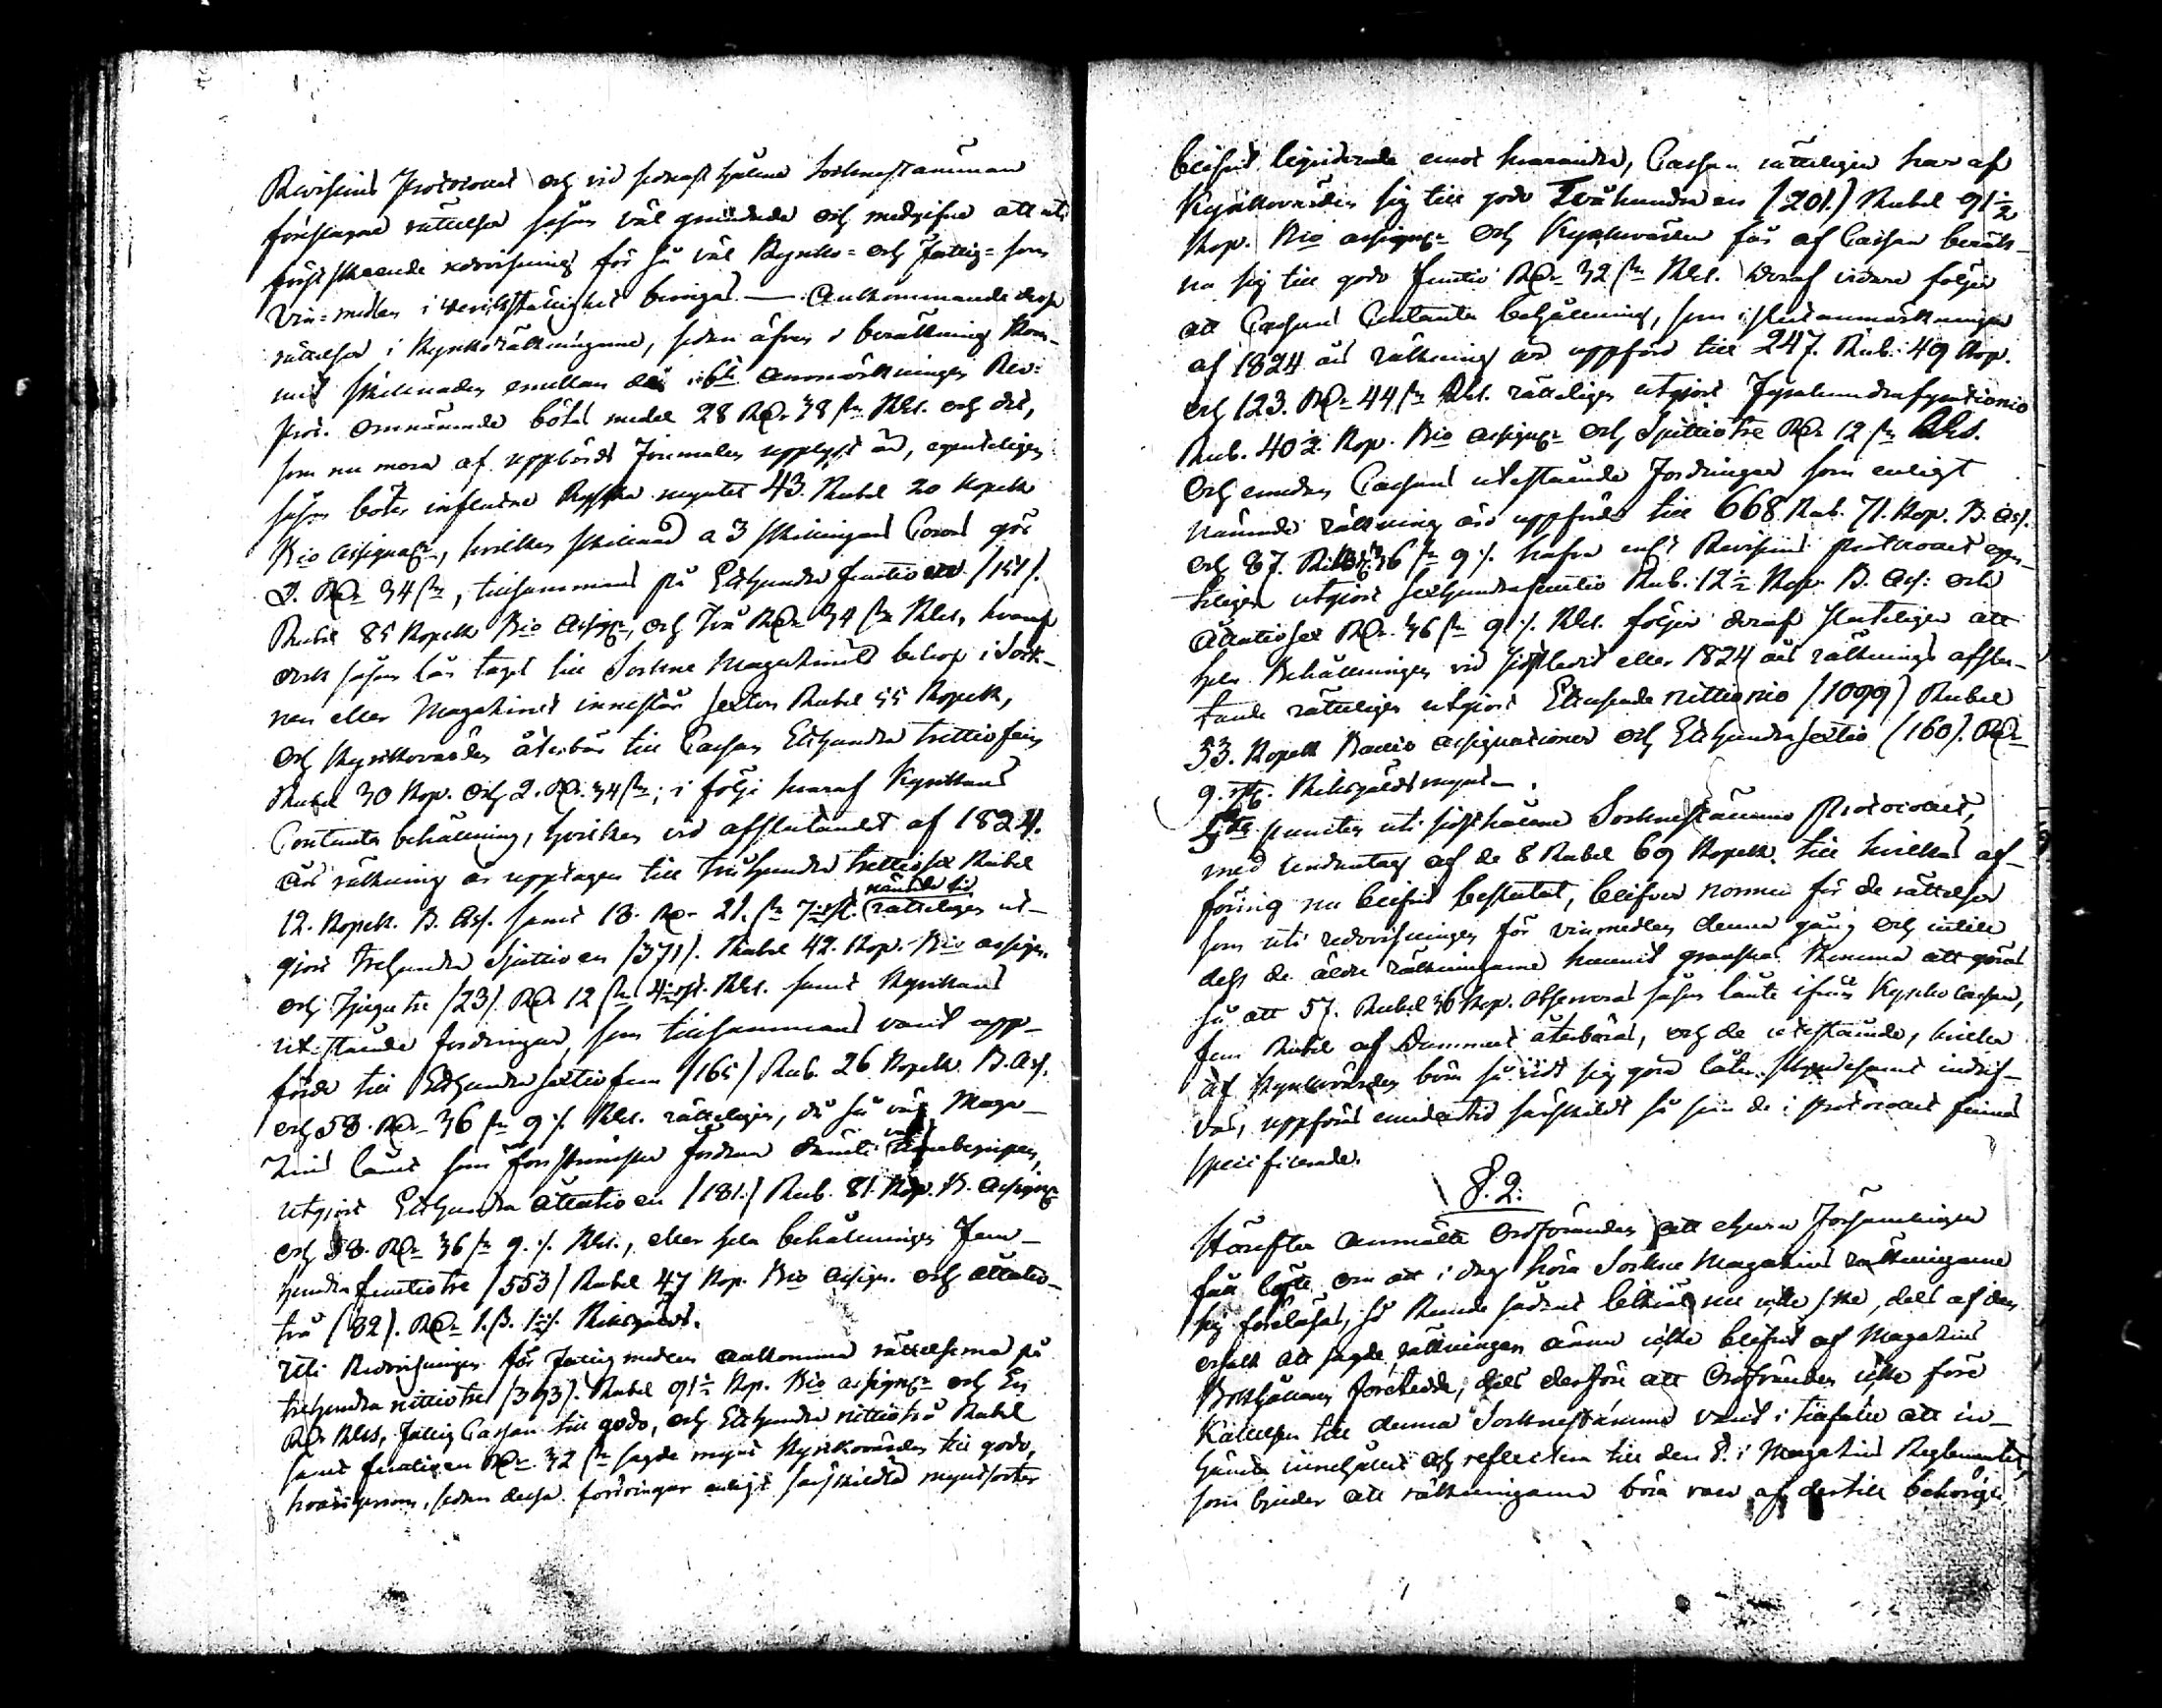 Revisions Protocollet och vid sednast hållne Socknestämman
föreslagne rättelser såsom väl grundade och medgifne att uti
först skeende redovisning för så väl Kyrko- och Fattig- som
Vin-medlen i werkställighet bringas. — Ankommande desse
rättelser i Kyrkoräkningarne, sedan äfven i beräkning kom-
mit skillnaden emellan de i 6te anmärkningen Rev:
Prot. omnämnde böter medel 28 RDr 38 sk Rks. och det,
som nu mera af uppbörds Journalen upplyst är, egenteligen
såsom böter influtne Ryska myntet 43. Rubel 20 Kopek
Bco Assignatr, hvilken skillnad a 3 skillingars Cours gör
2. RDr 34 sk, tillsammans på Etthundra femtio en (151).
Rubel 85 Kopek Bco Assignr, och Två RDr 34 sk Rks, hvaraf
dock såsom lån taget till Sockne Magazinets behof i Sock-
nen eller Magazinet innestår sexton Rubel 55 Kopek,
och Kyrkovärden återbär till Cassan Etthundra trettiofem
Rubel 30 Kop. och 2. RDr. 34 sk; i följe hvaraf Kyrkans
Contanta behållning, hvilken vid afslutandet af 1824.
års räkning är upptagen till tvåhundra trettiosex Rubel
12. Kopek. B. Ass. samt 18. RDr 21. sk 7 rst. nämnde tid rätteligen ut-
gjort trehundra sjuttio en (371). Rubel 42. Kop. Bco assign.
och Tjugu tre (23) RDr 12 sk 4 rst. Rks. samt Kyrkans
utestående fordringar, som tillsammans varit upp-
förde till Etthundra sextio fem (165) Rub. 26 Kopek. B. Ass.
och 58. RDr 36 sk 9 rst. Rks. rätteligen, då så väl Maga-
zins lånet som fordran varit inbegripen,
utgjort Etthundra åttatio en (181.) Rub. 81. Kop. B. Assignr
och 58. RDr 36 sk 9 rst. Rks., eller hela behållningen Fem-
hundra femtiotre (553) Rubel 47 Kop. Bco Assign. och åttatio-
två (82). RDr 1. sk. 1 rst. Riksgälds.
Uti Redovisningen för Fattigmedlen ankomma rättelserna på
trehundra nittiotre (393). Rubel 91½ Kop. Bco assignr och En
RDr Rks, Fattig Cassan till godo, och Etthundra nittiotvå Rubel
samt femtio en RDr. 32 sk sagde mynt Kyrkovärden till godo,
hvarigenom, sedan dessa fordringar enligt särskildta myntsorter
blifvit liquiderade emot hvarandra, Cassan rätteligen har af
Kyrkovärden sig till godo Tvåhundra en (201.) Rubel 91½
Kop. Bco assignr och Kyrkovärden får af Cassan beräk-
na sig till godo femtio RDr 32 sk Rks. Deraf vidare följer
att Cassans Contanta behållning, som i slutanmärkningen
af 1824 års räkning är uppförd till 247. Rub. 49 Kop.
och 123. RDr 44 sk Rks. rätteligen utgjort Fyrahundrafyrationio
Rub. 40½ Kop. Bco assignr och Sjuttiotre RDr 12 sk Rks.
Och emedan Cassans utestående Fordringar som enligt
nämnde räkning äro uppförde till 668 Rub. 71. Kop. B. Ass.
och 87. Riksdr 36 sk 9 rst. hafva enligt Revisions protocollet egen-
teligen utgjort Sexhundrafemtio Rub. 12½ Kop. B. Ass: och
Åttatiosex RDr. 36 sk 9 rst. Rks. följer deraf sluteligen att
hela Behållningen vid sistledit eller 1824 års räknings afslu-
tande rätteligen utgjort Ettusende nittionio (1099) Rubel
53. Kopek Banco Assignationer och Etthundrasextio (160). RDr
9. rst. Riksgäldsmynt.
5te punkten uti sisthållne Sockenstämmo Protocollet,
med undantag af de 8 Rubel 69 Kopek. till hvilkas af-
föring nu blifvit beslutat, blifver normen för de rättelser
som uti redovisningen för vinmedlen denna gång och intill
dess de äldre räkningarne hunnit granskas komma att göras
så att 57. Rubel 36 Kop. observeras såsom lånte ifrån Kyrko Cassan,
fem Rubel af återbäras, och de utestående, hvilka
af Kyrkovärden böra så vidt sig göra låter skyndesamt indrif-
vas, uppföras emedlertid särskildt så som de i protocollet finnas
specificerade.
§. 2.
Härefter anmälte Ordföranden att ehuru Församlingen
fått löfte om att i dag höra Sockne Magazins räkningarne
sig föreläsas, så kunde sådant likväl nu icke ske, dels af den
orsak att sagde räkningar ännu icke blifvit af Magazins
Bokhållaren företedde, dels derföre att Ordföranden icke före
Kallelsen till denna Sockenstämma varit i tillfälle att in-
hämta innehållet och reflectera till den §. i Magazins Reglementet,
som bjuder att räkningarne böra vara af dertill behörige